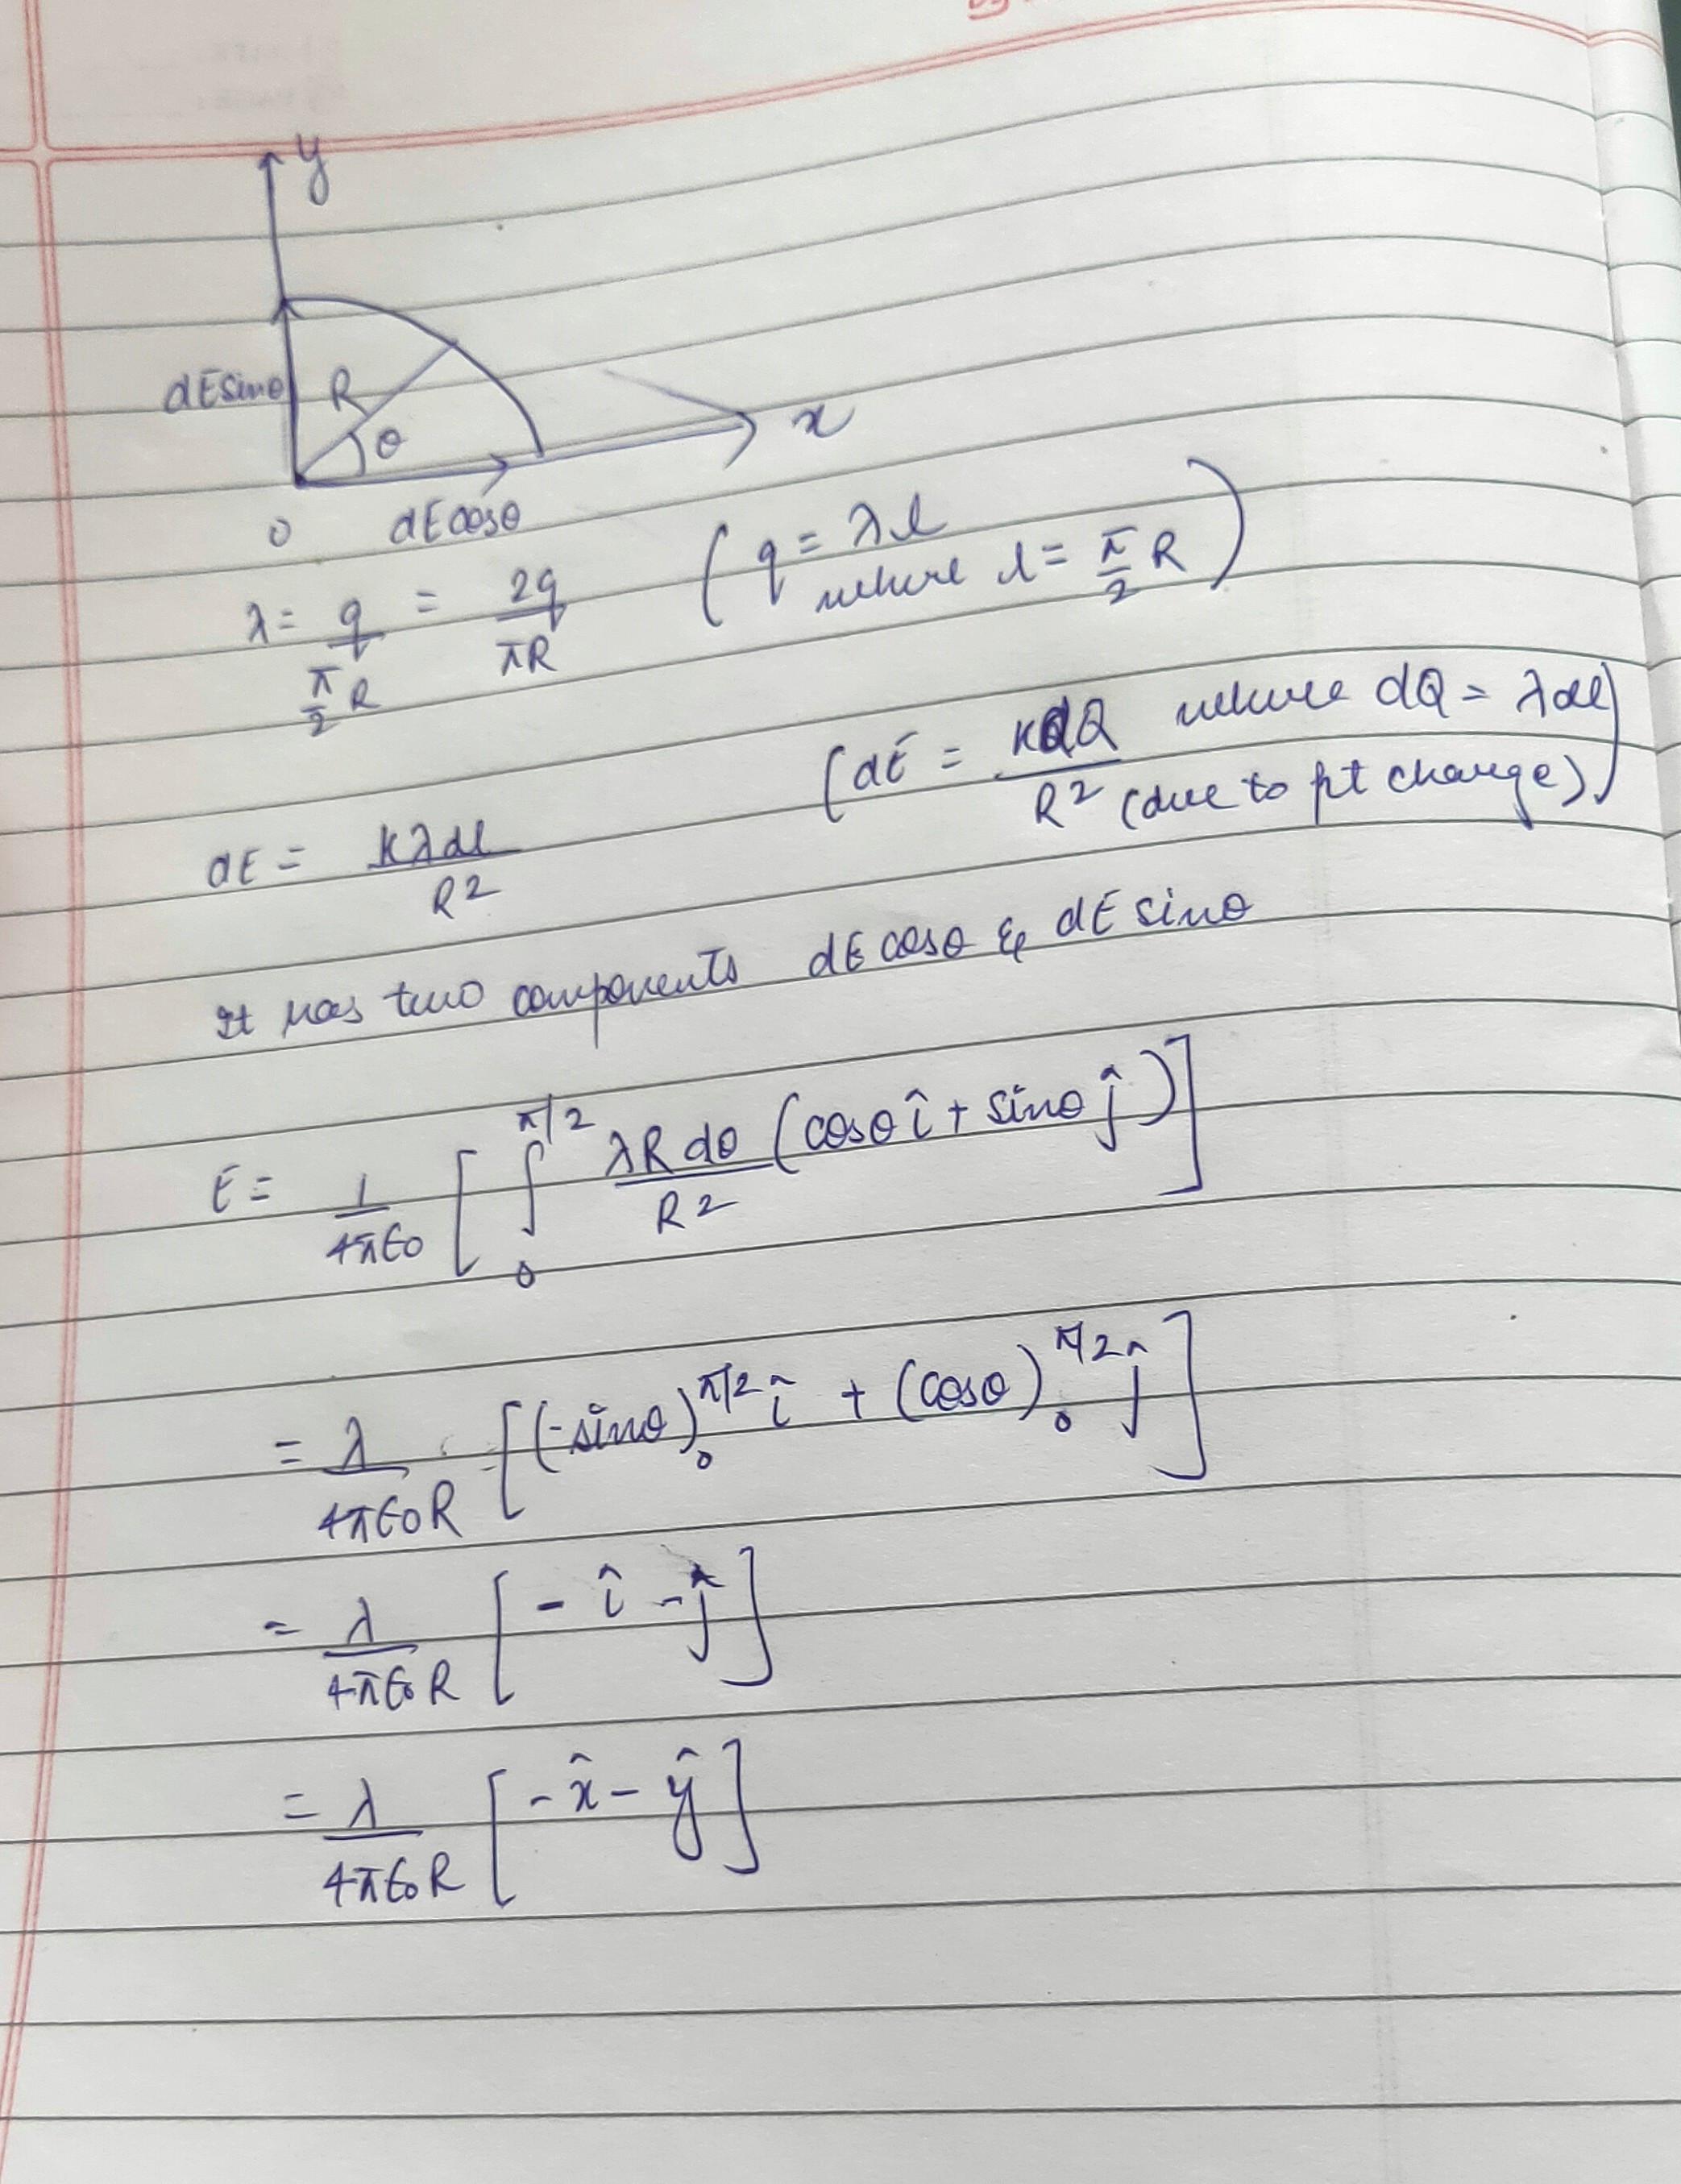 y
dEsinθ
R
θ
x
0 dEcosθ
λ = q/(π/2 R) = 2q/πR (q = λl where l = π/2 R)
(dE = KdQ/R² where dQ = λdl (due to pt charge))
dE = Kλdl/R²
It has two components dE cosθ & dE sinθ
E = 1/4πε0 [∫₀^π/2 λR dθ/R² (cosθ î + sinθ ĵ)]
= λ/4πε0R [(-sinθ)₀^π/2 î + (cosθ)₀^π/2 ĵ]
= λ/4πε0R [- î - ĵ]
= λ/4πε0R [- x̂ - ŷ]